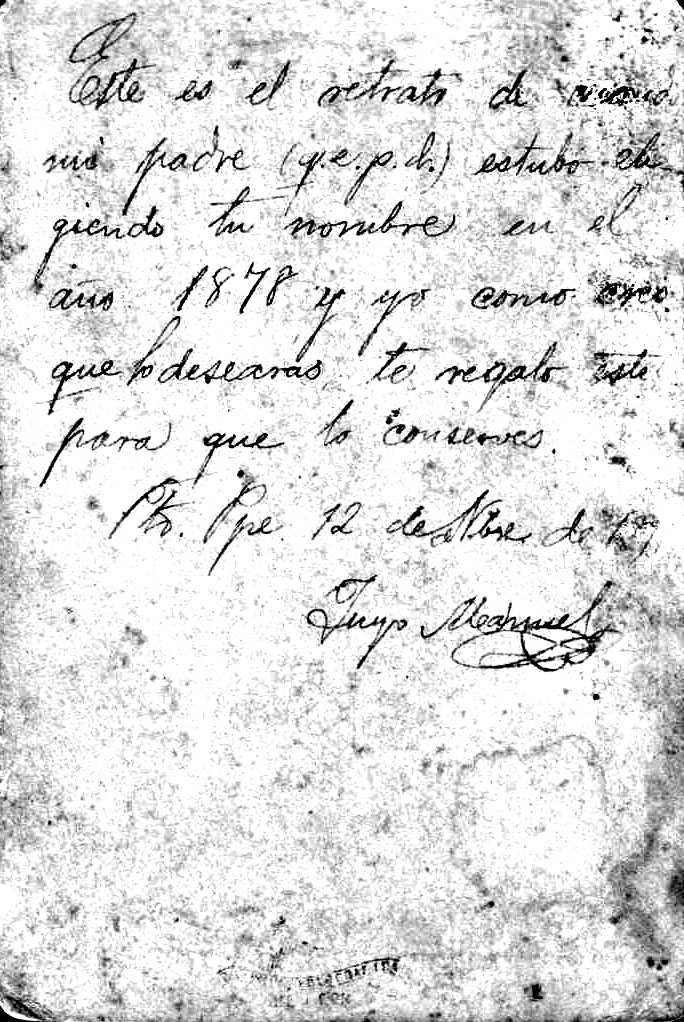 Este es el retrato de cuando
mi padre (q.e.p.d.) estubo eli-
giendo tu nombre en el
año 1878 y yo como creo
que lo desearas te regalo este
para que lo conserves.
Pto. Ppe. 12 de Nbre de
Tuyo Manuel